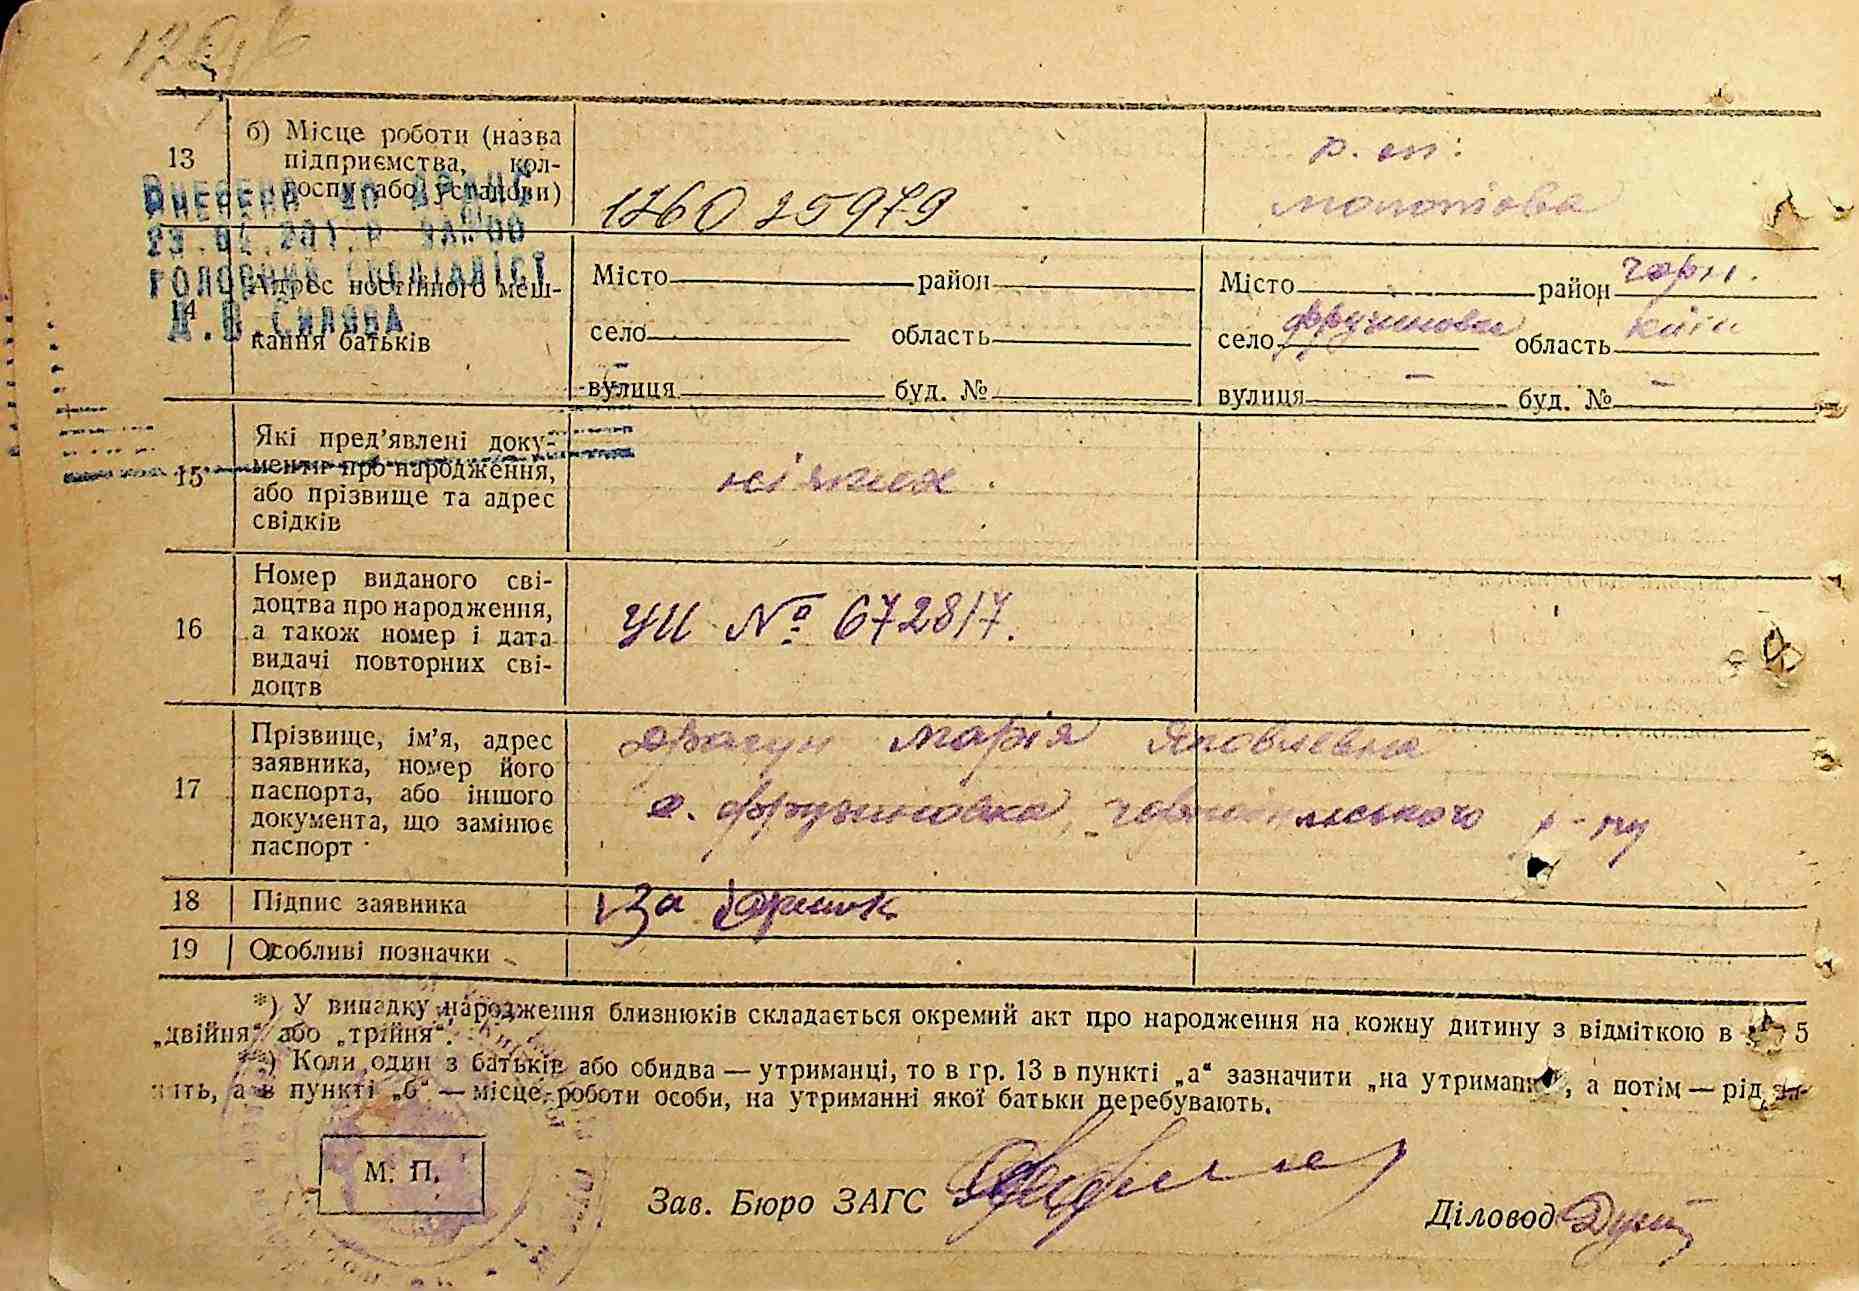 13
б) Місце роботи (назва
підприємства, кол-
госпу або установи)
1260 25979
Молотова
ВНЕСЕНА ДО
ГОЛОВНИЙ СПЕЦІАЛІСТ
Д.В. СИЛОВА
14
Адрес постійного меш-
кання батьків
Місто район
село область
вулиця буд. №
Місто район Чорн.
село Фрузиновка область Київ
вулиця — буд. № —
15
Які пред’явлені доку-
менти про народження,
або прізвище та адрес
свідків
ніяких
16
Номер виданого сві-
доцтва про народження,
а також номер і дата
видачі повторних сві-
доцтв
УЦ № 672817.
17
Прізвище, ім’я, адрес
заявника, номер його
паспорта, або іншого
документа, що замінює
паспорт
Драгун Марія Яковлевна
с. Фрузиновка, р-ну
18 Підпис заявника
За
19 Особливі позначки
*) У випадку народження близнюків складається окремий акт про народження на кожну дитину з відміткою в 5
„двійня“ або „трійня“.
**) Коли один з батьків або обидва — утриманці, то в гр. 13 в пункті „а“ зазначити „на утриманні“, а потім — рід за-
нять, а в пункті „б“ — місце роботи особи, на утриманні якої батьки перебувають.
М. П.
Зав. Бюро ЗАГС
Діловод